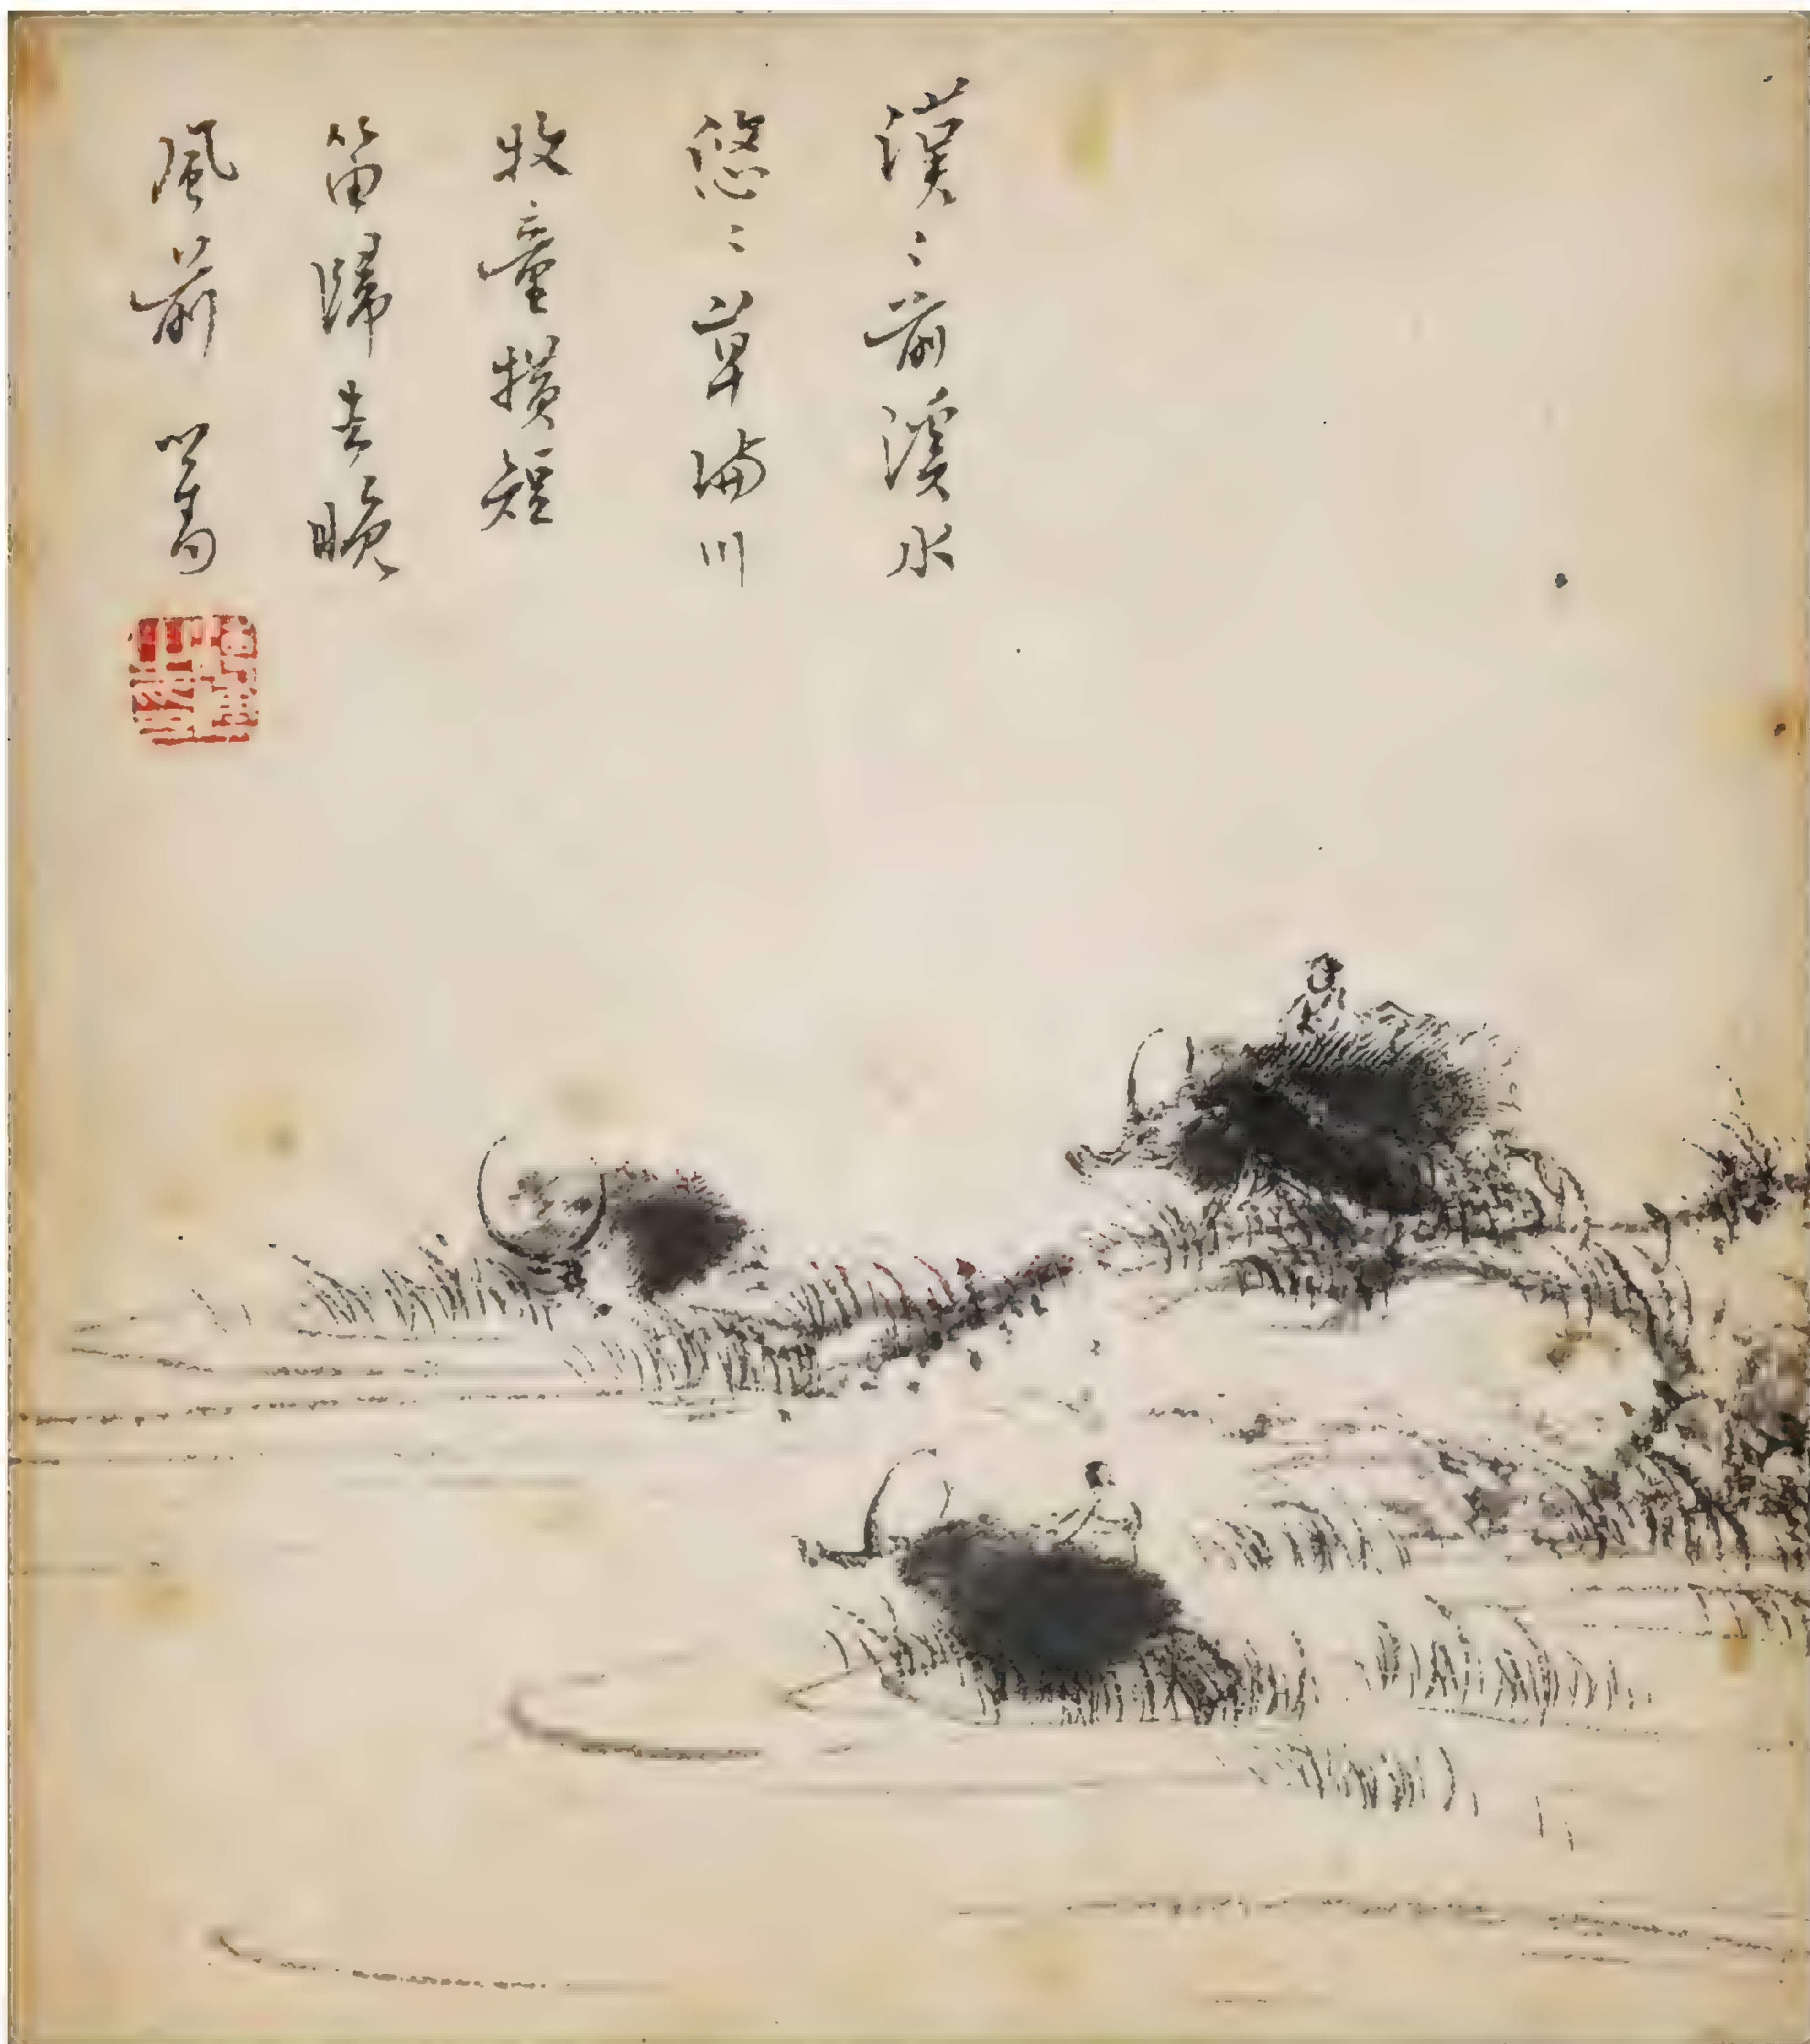 漠〻前溪水
悠〻草滿川
牧童橫短
笛歸去晚
風前 溥儒